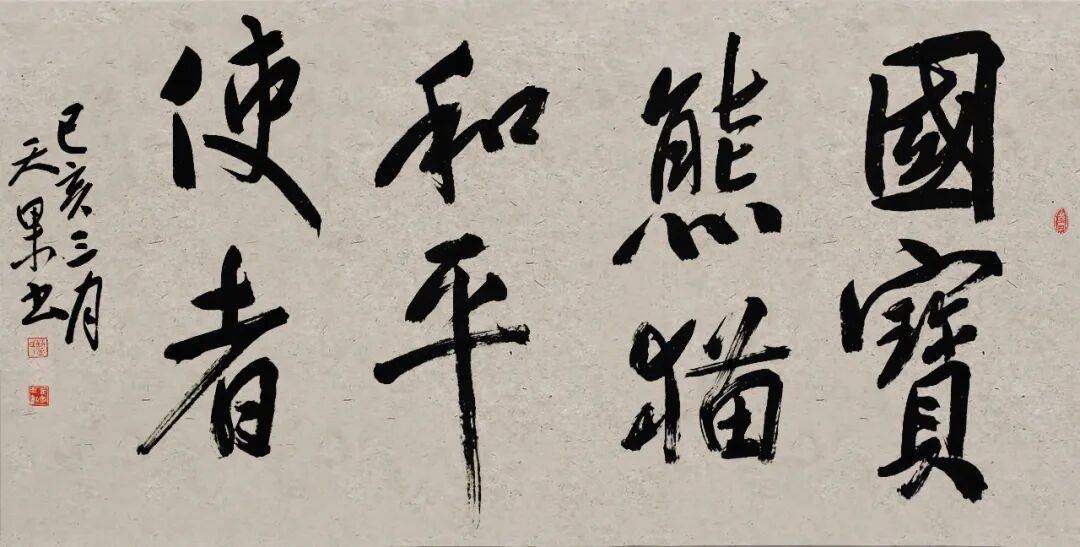 國寶
熊猫
和平
使者
己亥三月
天果书